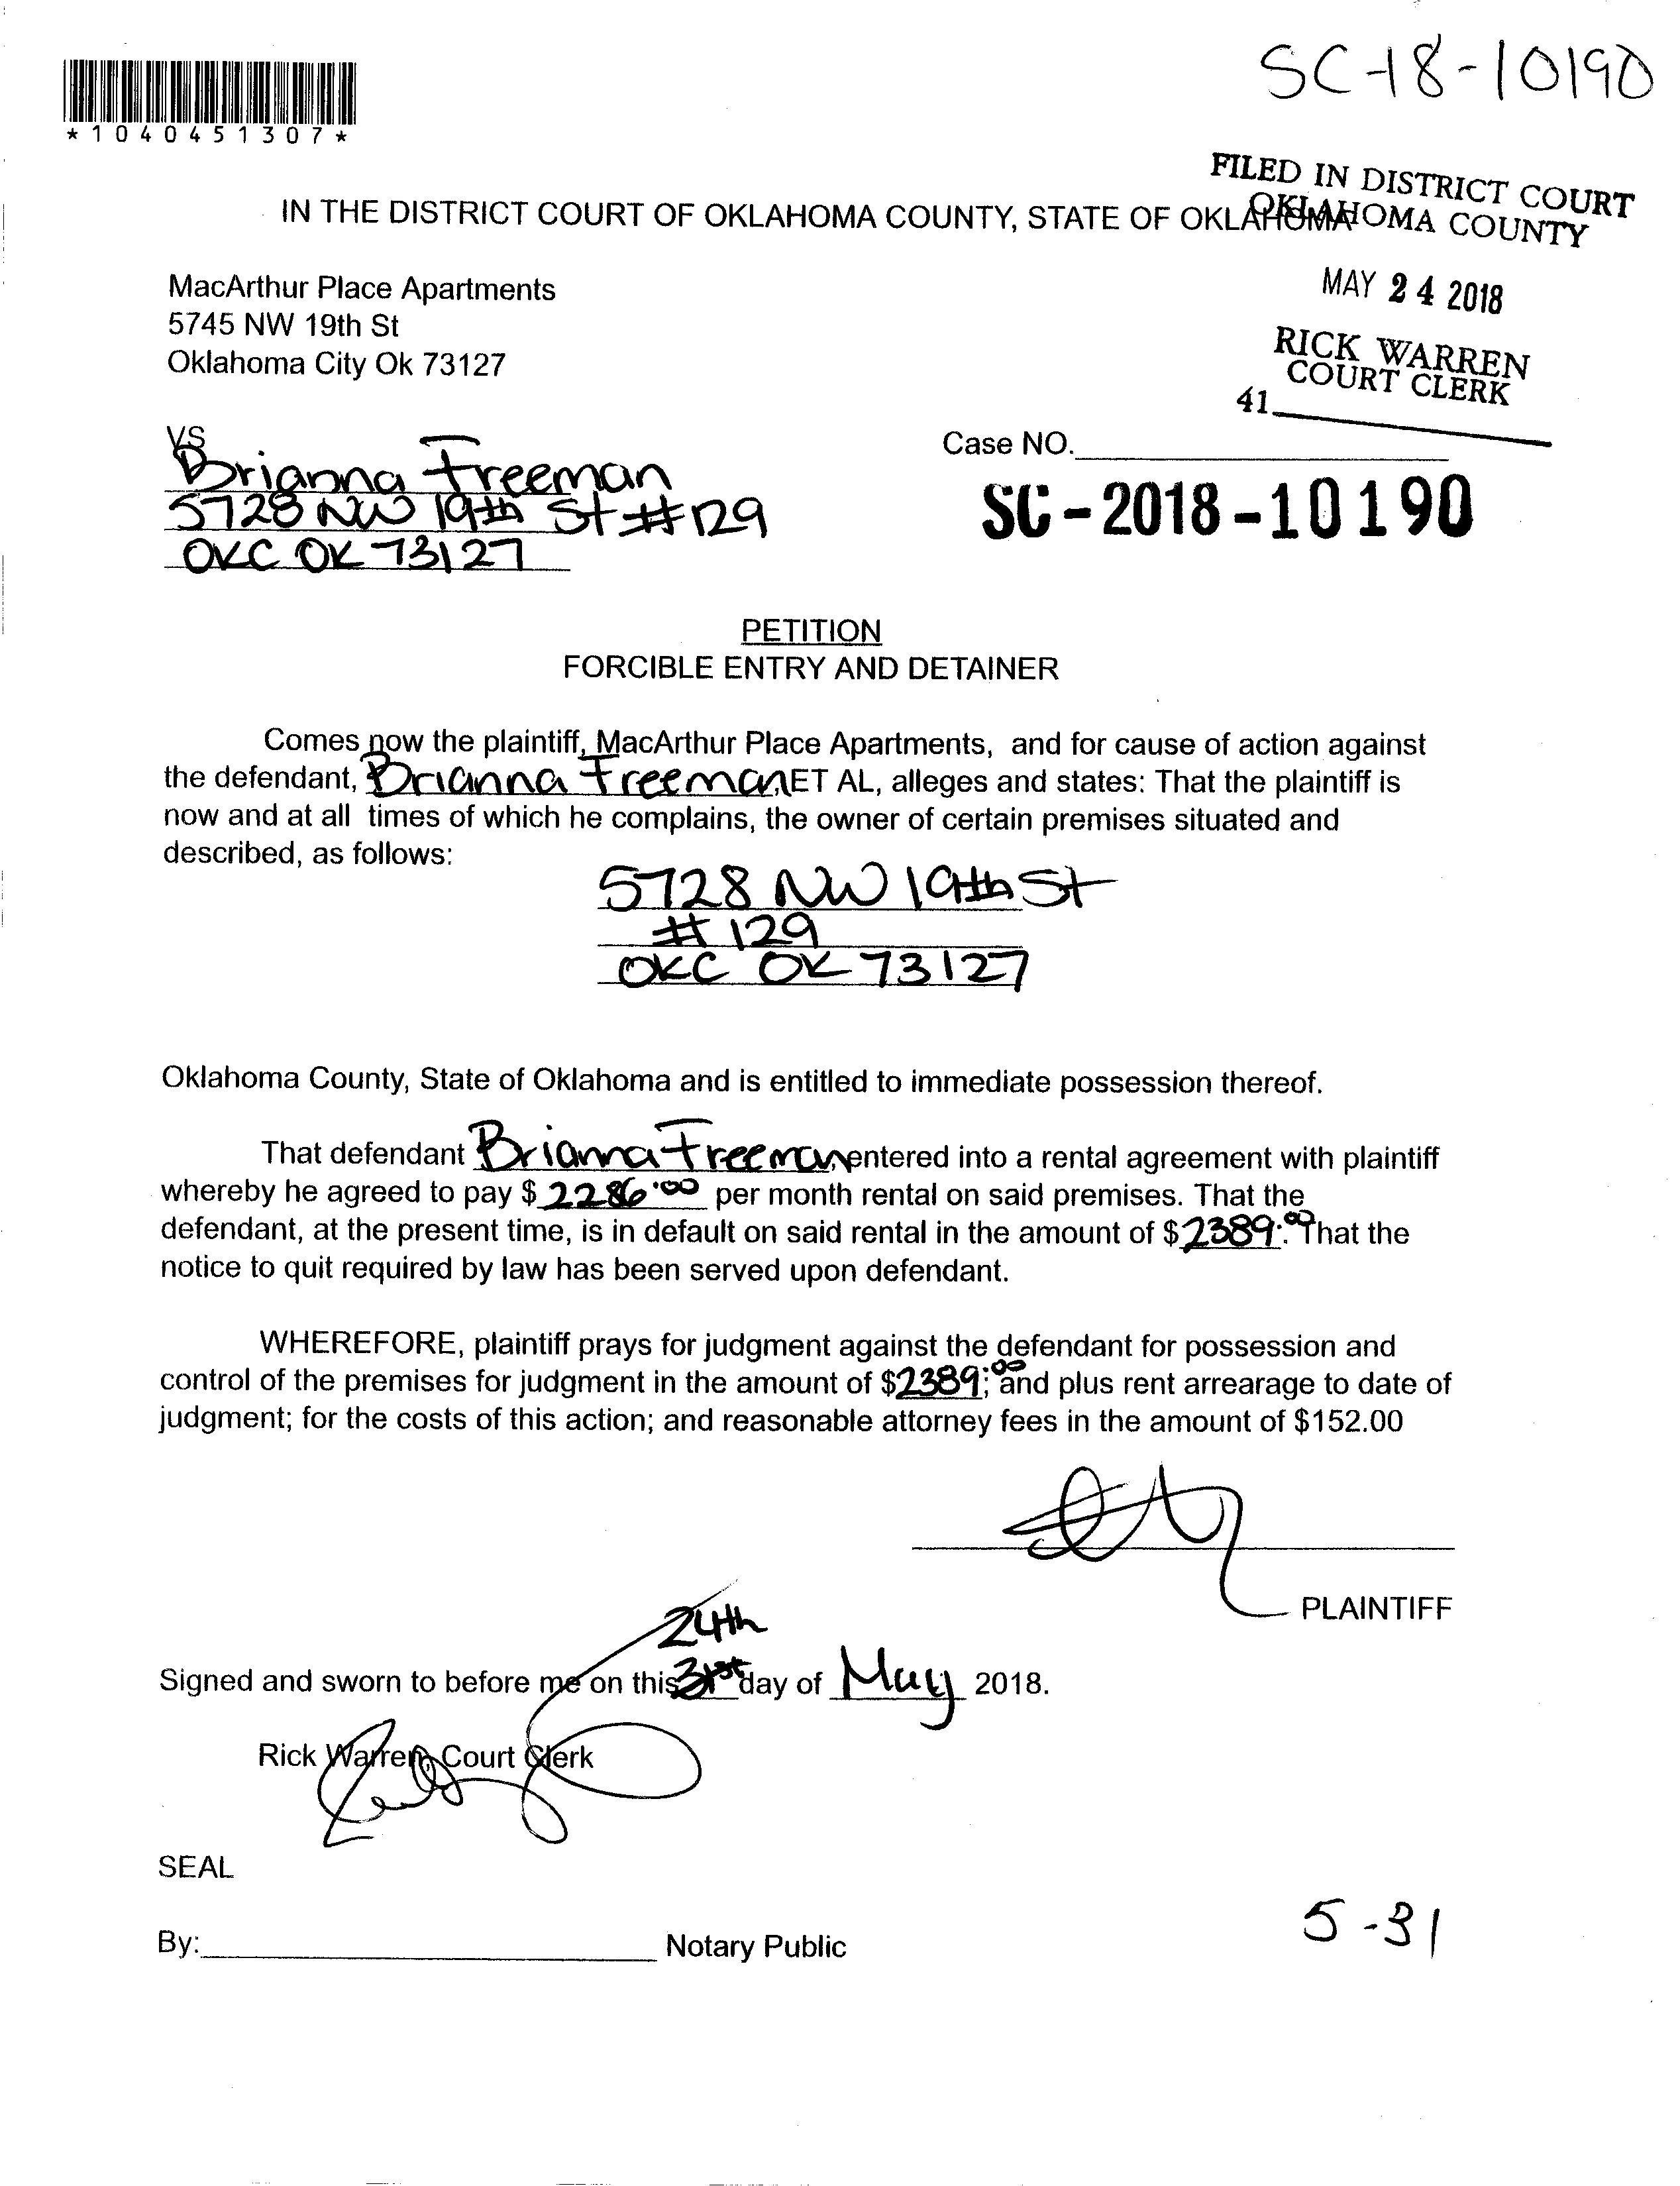 SC-18-10190
*1040451307*
FILED IN DISTRICT COURT
OKLAHOMA COUNTY
IN THE DISTRICT COURT OF OKLAHOMA COUNTY, STATE OF OKLAHOMA
MAY 24 2018
RICK WARREN
COURT CLERK
41
MacArthur Place Apartments
5745 NW 19th St
Oklahoma City Ok 73127
VS
Case NO.
Brianna Freeman
5728 NW 19th St #129
OKC OK 73127
SC-2018-10190
PETITION
FORCIBLE ENTRY AND DETAINER
Comes now the plaintiff, MacArthur Place Apartments, and for cause of action against
the defendant, Brianna Freeman, ET AL, alleges and states: That the plaintiff is
now and at all times of which he complains, the owner of certain premises situated and
described, as follows:
5728 NW 19th St
# 129
OKC OK 73127
Oklahoma County, State of Oklahoma and is entitled to immediate possession thereof.
That defendant Brianna Freeman, entered into a rental agreement with plaintiff
whereby he agreed to pay $ 2286.00 per month rental on said premises. That the
defendant, at the present time, is in default on said rental in the amount of $2389.00 That the
notice to quit required by law has been served upon defendant.
WHEREFORE, plaintiff prays for judgment against the defendant for possession and
control of the premises for judgment in the amount of $2389.00; and plus rent arrearage to date of
judgment; for the costs of this action; and reasonable attorney fees in the amount of $152.00
PLAINTIFF
24th
Signed and sworn to before me on this 31st day of May 2018.
Rick Warren, Court Clerk
SEAL
By: Notary Public
5-31